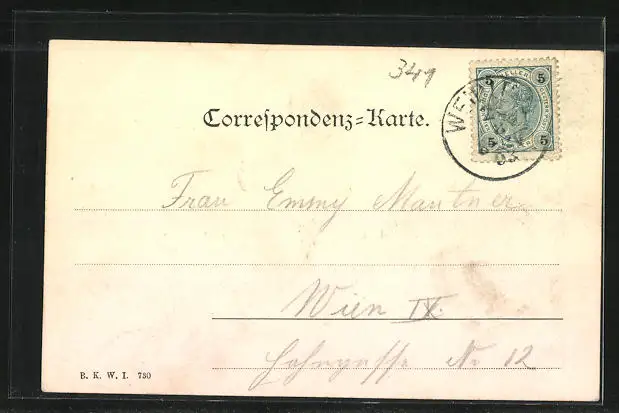 349
5 HELLER 5
5 5
Correspondenz=Karte.
Frau Emmy Mautner
Wien IX.
No 12
B. K. W. I. 730